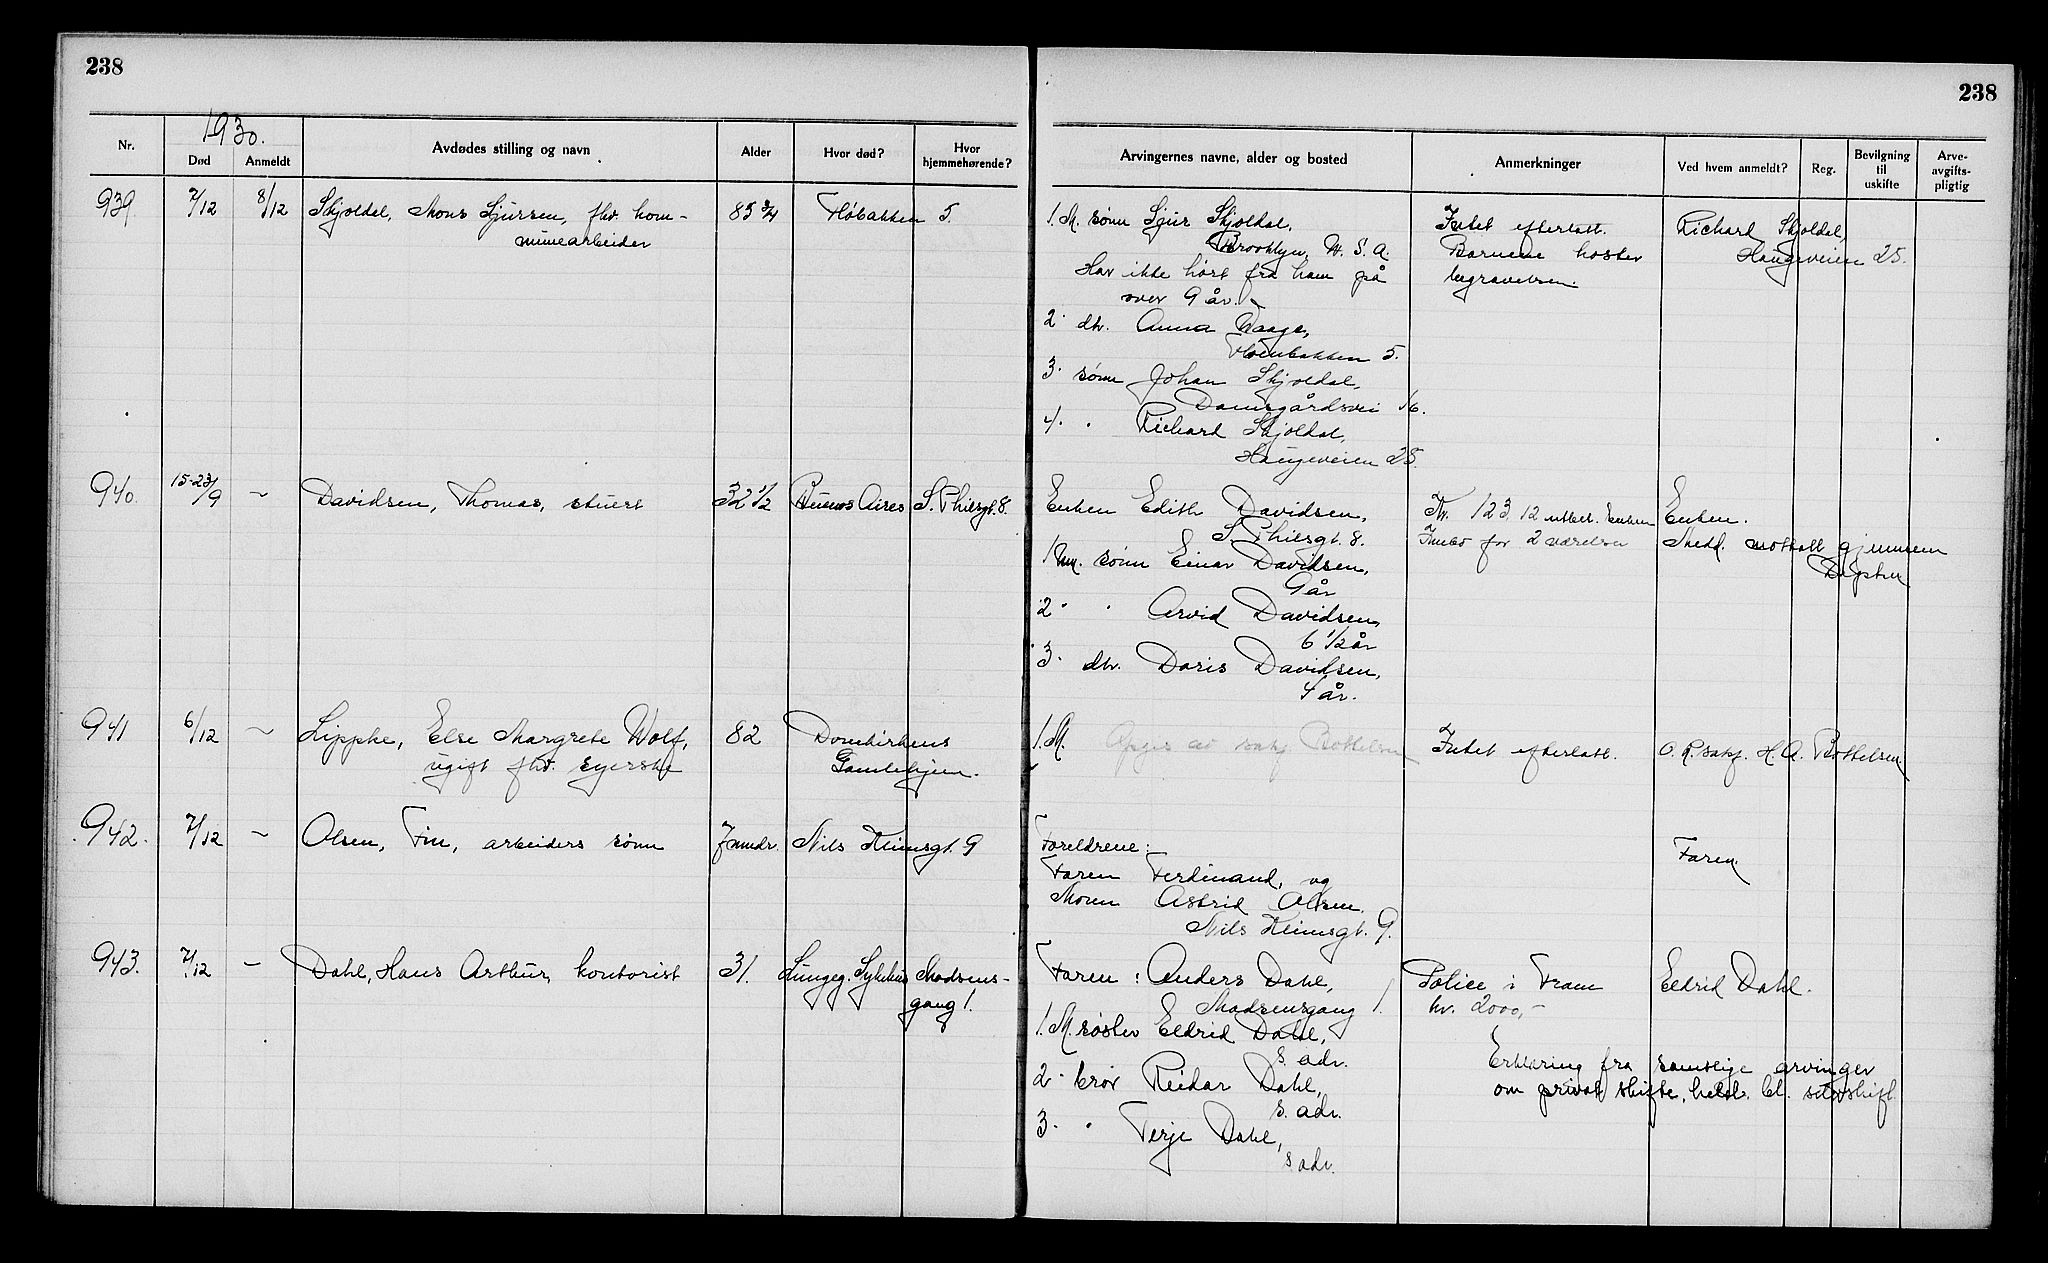 238
238
1930.
Nr.
Død
Anmeldt
Avdødes stilling og navn
Alder
Hvor død?
Hvor hjemmehørende?
Arvingernes navne, alder og bosted
Anmerkninger
Ved hvem anmeldt?
Reg.
Bevilgning til uskifte
Arve-avgifts-pligtig
939 7/12 8/12 Skjoldal, Mons Sjursen, fhv. kom-
munearbeider
83 3/4 Fløbakken 5.
1. M. sønn Sjur Skjoldal,
Brooklyn, U. S. A.
Har ikke hørt fra ham på
over 9 år.
2. dtr. Anna Waage,
Fløenbakken 5.
3. sønn Johan Skjoldal,
Damsgårdsvei 16.
4. " Richard Skjoldal,
Haugeveien 25.
Intet efterlatt.
Barnene koster
begravelsen.
Richard Skjoldal,
Haugeveien 25.
940. 15-23/9 ~ Davidsen, Thomas, stuert 32 1/2 Buenos Aires
Enken Edith Davidsen,
1. M. sønn Einar Davidsen,
9 år
2. " Arvid Davidsen,
6 1/2 år
3. dtr. Doris Davidsen,
4 år.
Kr. 123.12 utbet. Enken
Innbo for 2 værelser
Enken.
Medd. mottatt gjennem
941 6/12 ~ Lippke, Else Margrete Wolf,
ugift fhv. syerske
82 Domkirkens
Gamlehjem.
1. M. Opgis av sakf. Bottelsen
Intet efterlatt.
O. R. sakf. H. A. Bottelsen.
942. 7/12 ~ Olsen, Finn, arbeiders sønn 7 mndr. Nils Heimsgt. 9
Foreldrene:
Faren Ferdinand, og
Moren Astrid Olsen.
Nils Heimsgt. 9.
Faren.
943. 7/12 ~ Dahl, Hans Arthur, kontorist 31. Lungeg. Sykehus Madsens-
gang 1.
Faren: Anders Dahl,
Madsensgang 1.
1. M. søster Eldrid Dahl,
s. adr.
2. bror Reidar Dahl,
s. adr.
3. " Terje Dahl,
s. adr.
Police i Fram
kr. 2000,-
Eldrid Dahl.
Erklæring fra samtlige arvinger
om privat skifte,